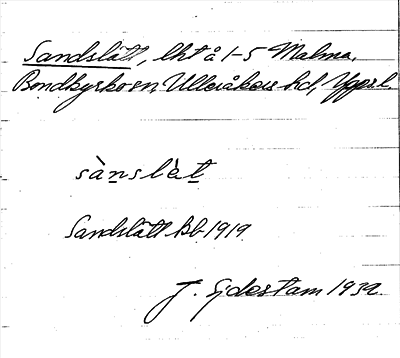 Sandslätt, lht å 1-5 Malma,
Bondkyrko sn, Ulleråkers hd, Uppsl.
sànslèt
Sandslätt Bb 1919
J. Gjdestam 1939